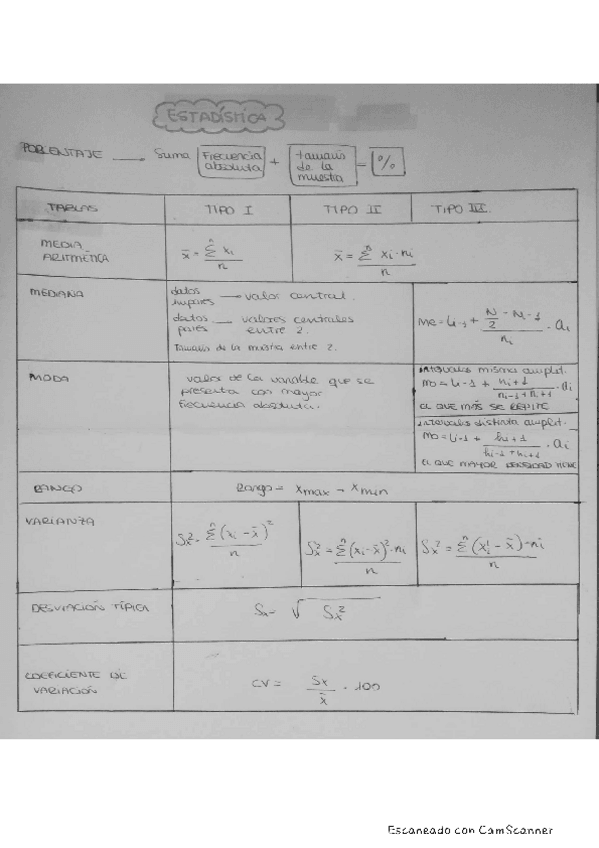 ESTADÍSTICA
PORCENTAJE → Suma Frecuencia absoluta + tamaño de la muestra = %
TABLAS TIPO I TIPO II TIPO III
MEDIA ARITMÉTICA x̄ = Σⁿ xi / n x̄ = Σⁿ xi · ni / n
MEDIANA
datos impares → valor central.
datos pares → valores centrales entre 2.
Tamaño de la muestra entre 2.
Me = Li-1 + (N/2 - Ni-1) / ni · ai
MODA
valor de la variable que se
presenta con mayor
frecuencia absoluta.
Intervalos misma amplit.
Mo = Li-1 + ni+1 / (ni-1 + ni+1) · ai
EL QUE MÁS SE REPITE
Intervalos distinta amplit.
Mo = Li-1 + hi+1 / (hi-1 + hi+1) · ai
EL QUE MAYOR DENSIDAD TIENE
RANGO Rango = xmax - xmin
VARIANZA Sx² = Σⁿ (xi - x̄)² / n Sx² = Σⁿ (xi - x̄)² · ni / n Sx² = Σⁿ (xi' - x̄) · ni / n
DESVIACIÓN TÍPICA Sx = √ Sx²
COEFICIENTE DE VARIACIÓN CV = Sx / x̄ · 100
Escaneado con CamScanner